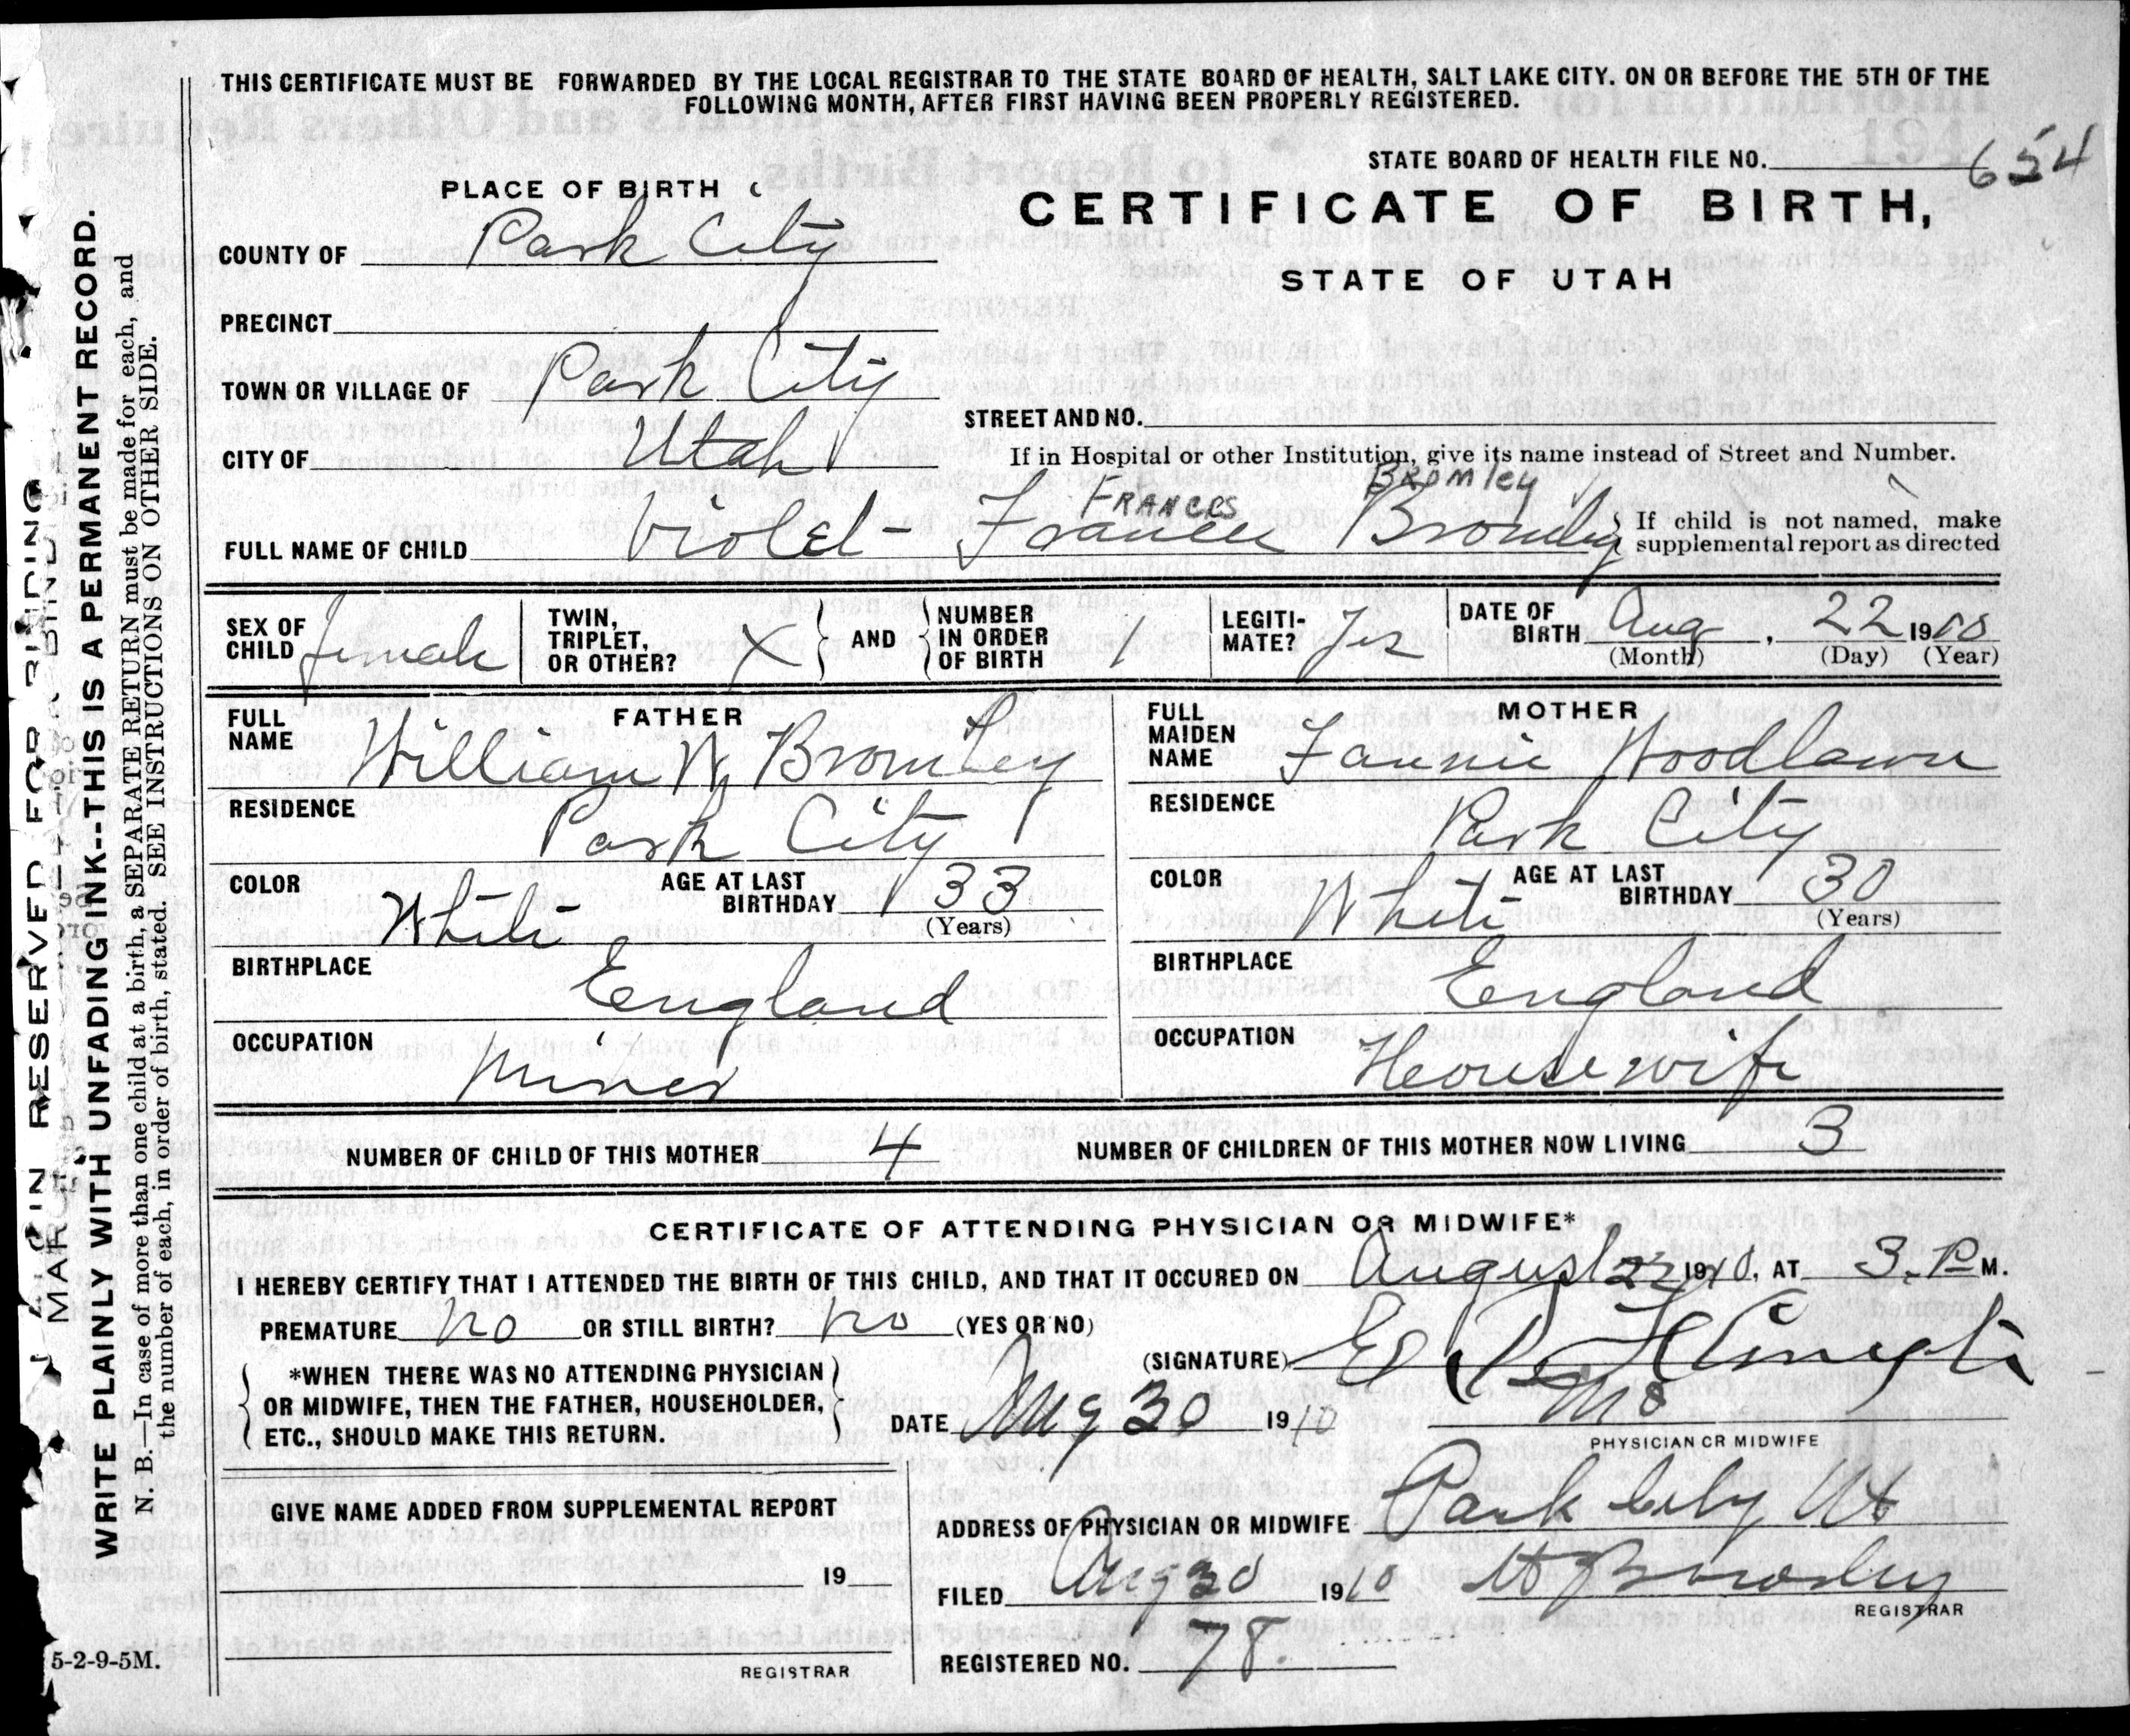 THIS CERTIFICATE MUST BE FORWARDED BY THE LOCAL REGISTRAR TO THE STATE BOARD OF HEALTH, SALT LAKE CITY. ON OR BEFORE THE 5TH OF THE
FOLLOWING MONTH, AFTER FIRST HAVING BEEN PROPERLY REGISTERED.
STATE BOARD OF HEALTH FILE NO. 654
PLACE OF BIRTH
CERTIFICATE OF BIRTH,
STATE OF UTAH
COUNTY OF Park City
PRECINCT
TOWN OR VILLAGE OF Park City
STREET AND NO.
CITY OF Utah
If in Hospital or other Institution, give its name instead of Street and Number.
FRANCES BROMley
FULL NAME OF CHILD Violet- Frances Bromley
If child is not named, make
supplemental report as directed
SEX OF CHILD female
TWIN, TRIPLET, OR OTHER? X
AND
NUMBER IN ORDER OF BIRTH 1
LEGITI-MATE? Yes
DATE OF BIRTH Aug, 22 19
(Month) (Day) (Year)
FATHER
FULL NAME William N Bromley
RESIDENCE Park City
COLOR White
AGE AT LAST BIRTHDAY 33
(Years)
BIRTHPLACE England
OCCUPATION Miner
MOTHER
FULL MAIDEN NAME Fannie Woodlawn
RESIDENCE Park City
COLOR White
AGE AT LAST BIRTHDAY 30
(Years)
BIRTHPLACE England
OCCUPATION Housewife
NUMBER OF CHILD OF THIS MOTHER 4
NUMBER OF CHILDREN OF THIS MOTHER NOW LIVING 3
CERTIFICATE OF ATTENDING PHYSICIAN OR MIDWIFE*
I HEREBY CERTIFY THAT I ATTENDED THE BIRTH OF THIS CHILD, AND THAT IT OCCURED ON August 22 1910, AT 3. P M.
PREMATURE no OR STILL BIRTH? no (YES OR NO)
*WHEN THERE WAS NO ATTENDING PHYSICIAN
OR MIDWIFE, THEN THE FATHER, HOUSEHOLDER,
ETC., SHOULD MAKE THIS RETURN.
(SIGNATURE)
DATE Aug 30 1910
PHYSICIAN OR MIDWIFE
GIVE NAME ADDED FROM SUPPLEMENTAL REPORT
19
REGISTRAR
ADDRESS OF PHYSICIAN OR MIDWIFE Park City Ut
FILED Aug 30 1910
REGISTRAR
REGISTERED NO. 78.
5-2-9-5M.
MARGIN RESERVED FOR BINDING
WRITE PLAINLY WITH UNFADING INK--THIS IS A PERMANENT RECORD.
N. B.—In case of more than one child at a birth, a SEPARATE RETURN must be made for each, and
the number of each, in order of birth, stated. SEE INSTRUCTIONS ON OTHER SIDE.